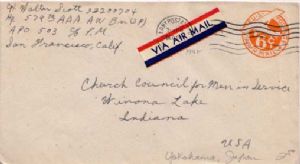 Walter Scott 32200704
Hq 574th AAA AW Bn (SP)
APO 503 % P.M.
San Francisco, Calif.
ARMY POSTAL
VIA AIR MAIL
6¢
Church Council for Men in Service
Winona Lake
Indiana
USA
Yokohama, Japan